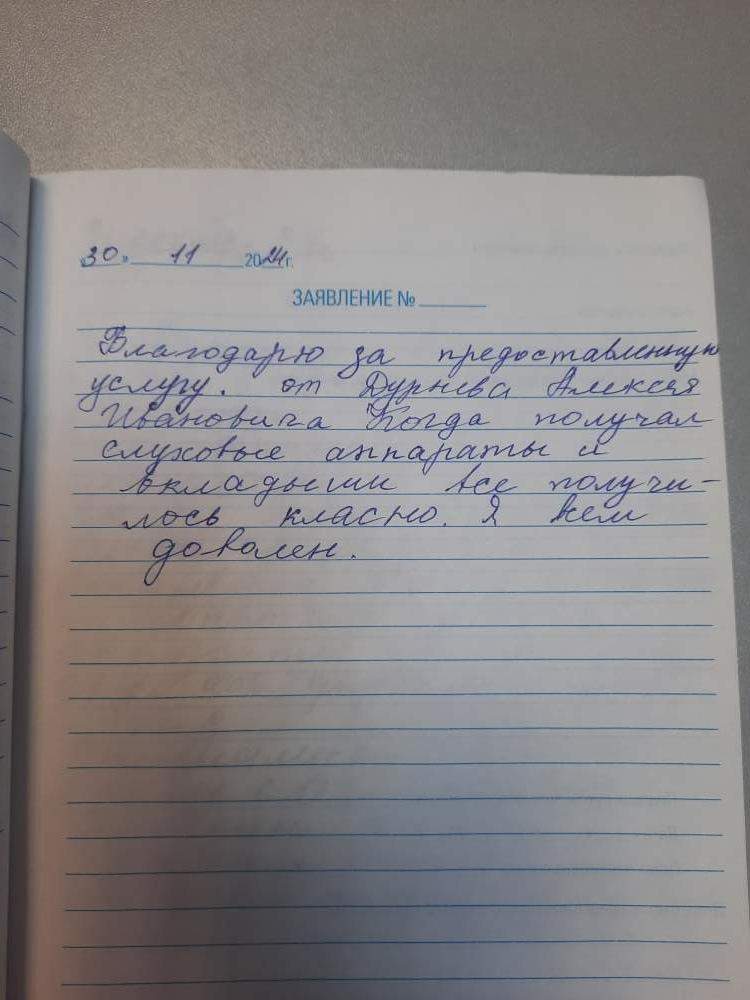 «30» 11 2024г.
ЗАЯВЛЕНИЕ №
Благодарю за предоставленную
услугу. от Дурнева Алексея
Ивановича Когда получал
слуховые аппараты и
вкладыши все получи-
лось класно. Я всем
доволен.